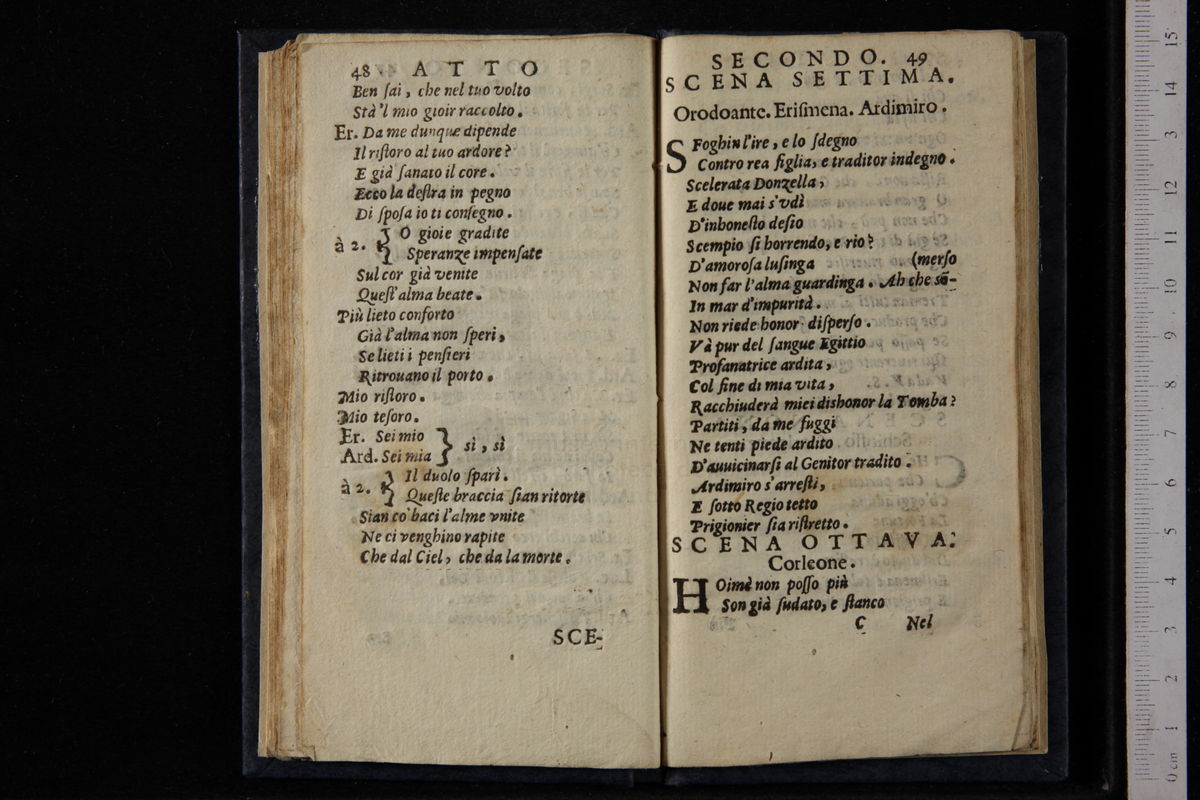 48 ATTO
Ben ſai, che nel tuo volto
Stà 'l mio gioir raccolto.
Er. Da me dunque dipende
Il riſtoro al tuo ardore?
E già ſanato il core.
Ecco la deſtra in pegno
Di ſpoſa io ti conſegno.
à 2. { O gioie gradite
Speranze impenſate
Sul cor già venite
Queſt'alma beate.
Più lieto conforto
Già l'alma non ſperi,
Se lieti i penſieri
Ritrouano il porto.
Mio riſtoro.
Mio teſoro.
Er. Sei mio } sì, sì
Ard. Sei mia
à 2. { Il duolo ſparì.
Queſte braccia ſian ritorte
Sian co' baci l'alme vnite
Ne ci venghino rapite
Che dal Ciel, che da la morte.
SCE-
SECONDO. 49
SCENA SETTIMA.
Orodoante. Eriſmena. Ardimiro.
SFoghin l'ire, e lo ſdegno
Contro rea figlia, e traditor indegno.
Scelerata Donzella,
E doue mai s'vdì
D'inhoneſto deſio
Scempio ſi horrendo, e rio?
D'amoroſa luſinga (merſo
Non far l'alma guardinga. Ah che sō-
In mar d'impurità.
Non riede honor diſperſo.
Và pur del ſangue Egittio
Profanatrice ardita,
Col fine di mia vita,
Racchiuderà miei dishonor la Tomba?
Partiti, da me fuggi
Ne tenti piede ardito
D'auuicinarſi al Genitor tradito.
Ardimiro s'arreſti,
E ſotto Regio tetto
Prigionier ſia riſtretto.
SCENA OTTAVA.
Corleone.
HOimè non poſſo più
Son già ſudato, e ſtanco
C Nel